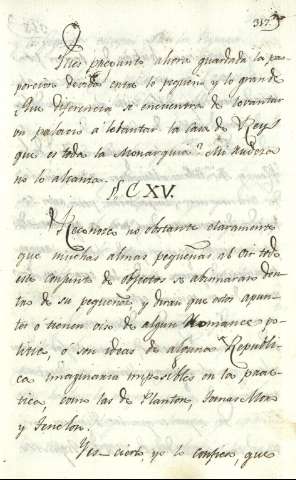 317.
Pues pregunto ahora guardada la pro-
porcion devida entre lo pequeño y lo grande
Que diferencia se encuentra de levantar
un palacio a levantar la casa de Rey
que es toda la Monarquia? Mi rudeza
no lo alcanza.
§§ CXV.
Reconozco no obstante claramente
que muchas almas pequeñas al oir todo
este conjunto de objetos se abismaran den-
tro de su pequeñez, y diran que estos apun-
tes ó tienen olor de algun Romance po-
litico, ó son ideas de alguna Republi-
ca imaginaria imposibles en la prac-
tica, como las de Platon, Tomas Moro
y Fenelon.
Yes-cierto, yo lo confieso, que